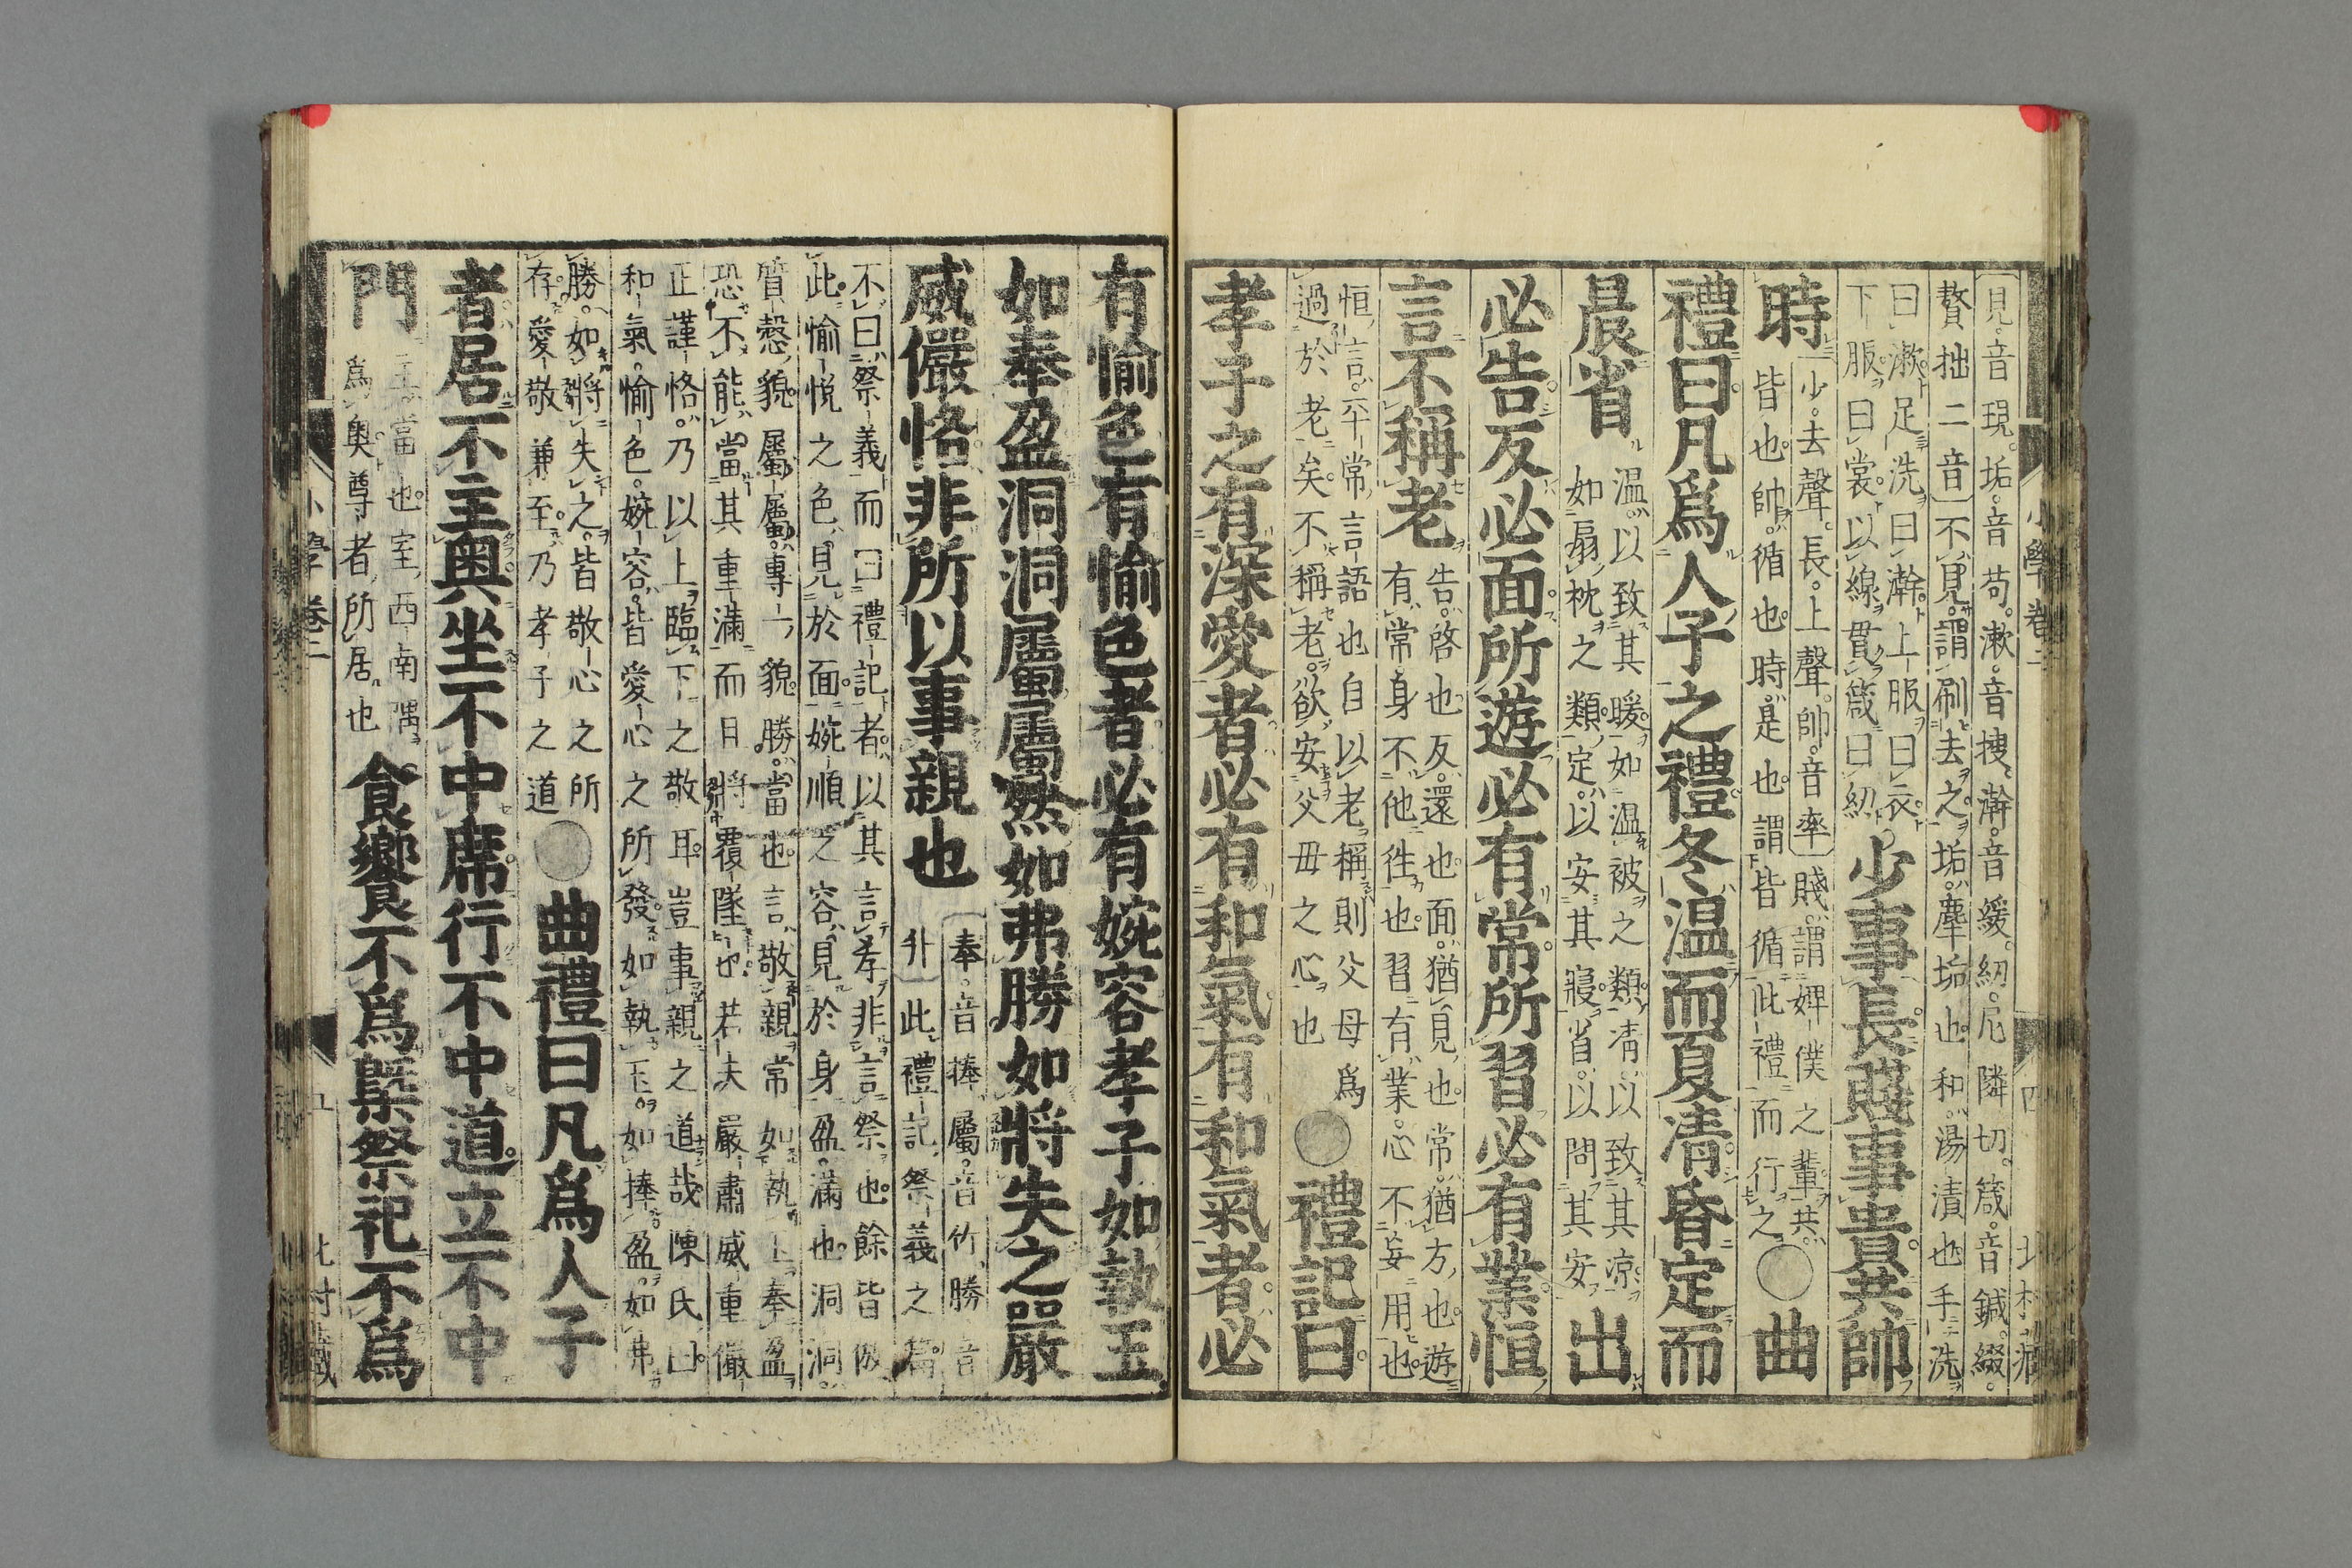 見音現垢音苟漱音搜澣音緩紉尼隣切箴音鍼綴
贅拙二音不見謂刷去之垢塵垢也和湯漬也手洗
曰漱足洗曰澣上服曰衣
下服曰裳以線貫箴曰紉
少事長賤事貴共帥
時
少去聲長上聲帥音率賤謂婢僕之輩共
皆也帥循也時是也謂皆循此禮而行之
曲
禮曰凡爲人子之禮冬温而夏凊昏定而
晨省
温以致其暖如温被之類凊以致其凉
如扇枕之類定以安其寢省以問其安
出
必告反必面所遊必有常所習必有業恒
言不稱老
告啓也反還也面猶見也常猶方也遊
有常身不他徃也習有業心不妄用也
恒言平常言語也自以老稱則父母爲
過於老矣不稱老欲安父毋之心也
禮記曰
孝子之有深愛者必有和氣有和氣者必
小學卷二
四
有愉色有愉色者必有婉容孝子如執玉
如奉盈洞洞屬屬然如弗勝如將失之嚴
威儼恪非所以事親也
奉音捧屬音竹勝音
升此禮記祭義之篇
不曰祭義而曰禮記者以其言孝非言祭也餘皆倣
此愉悦之色見於面婉順之容見於身盈滿也洞洞
質慤貌屬屬專一貌勝當也言敬親常如執玉奉盈
恐不能當其重滿而且將覆墜也若夫嚴肅威重儼
正謹恪乃以上臨下之敬耳豈事親之道哉陳氏曰
和氣愉色婉容皆愛心之所發如執玉如捧盈如弗
勝如將失之皆敬心之所
存愛敬兼至乃孝子之道
曲禮曰凡爲人子
者居不主奥坐不中席行不中道立不中
門
主當也室西南隅
爲奥尊者所居也
食饗不爲槩祭祀不爲
小學卷二
五